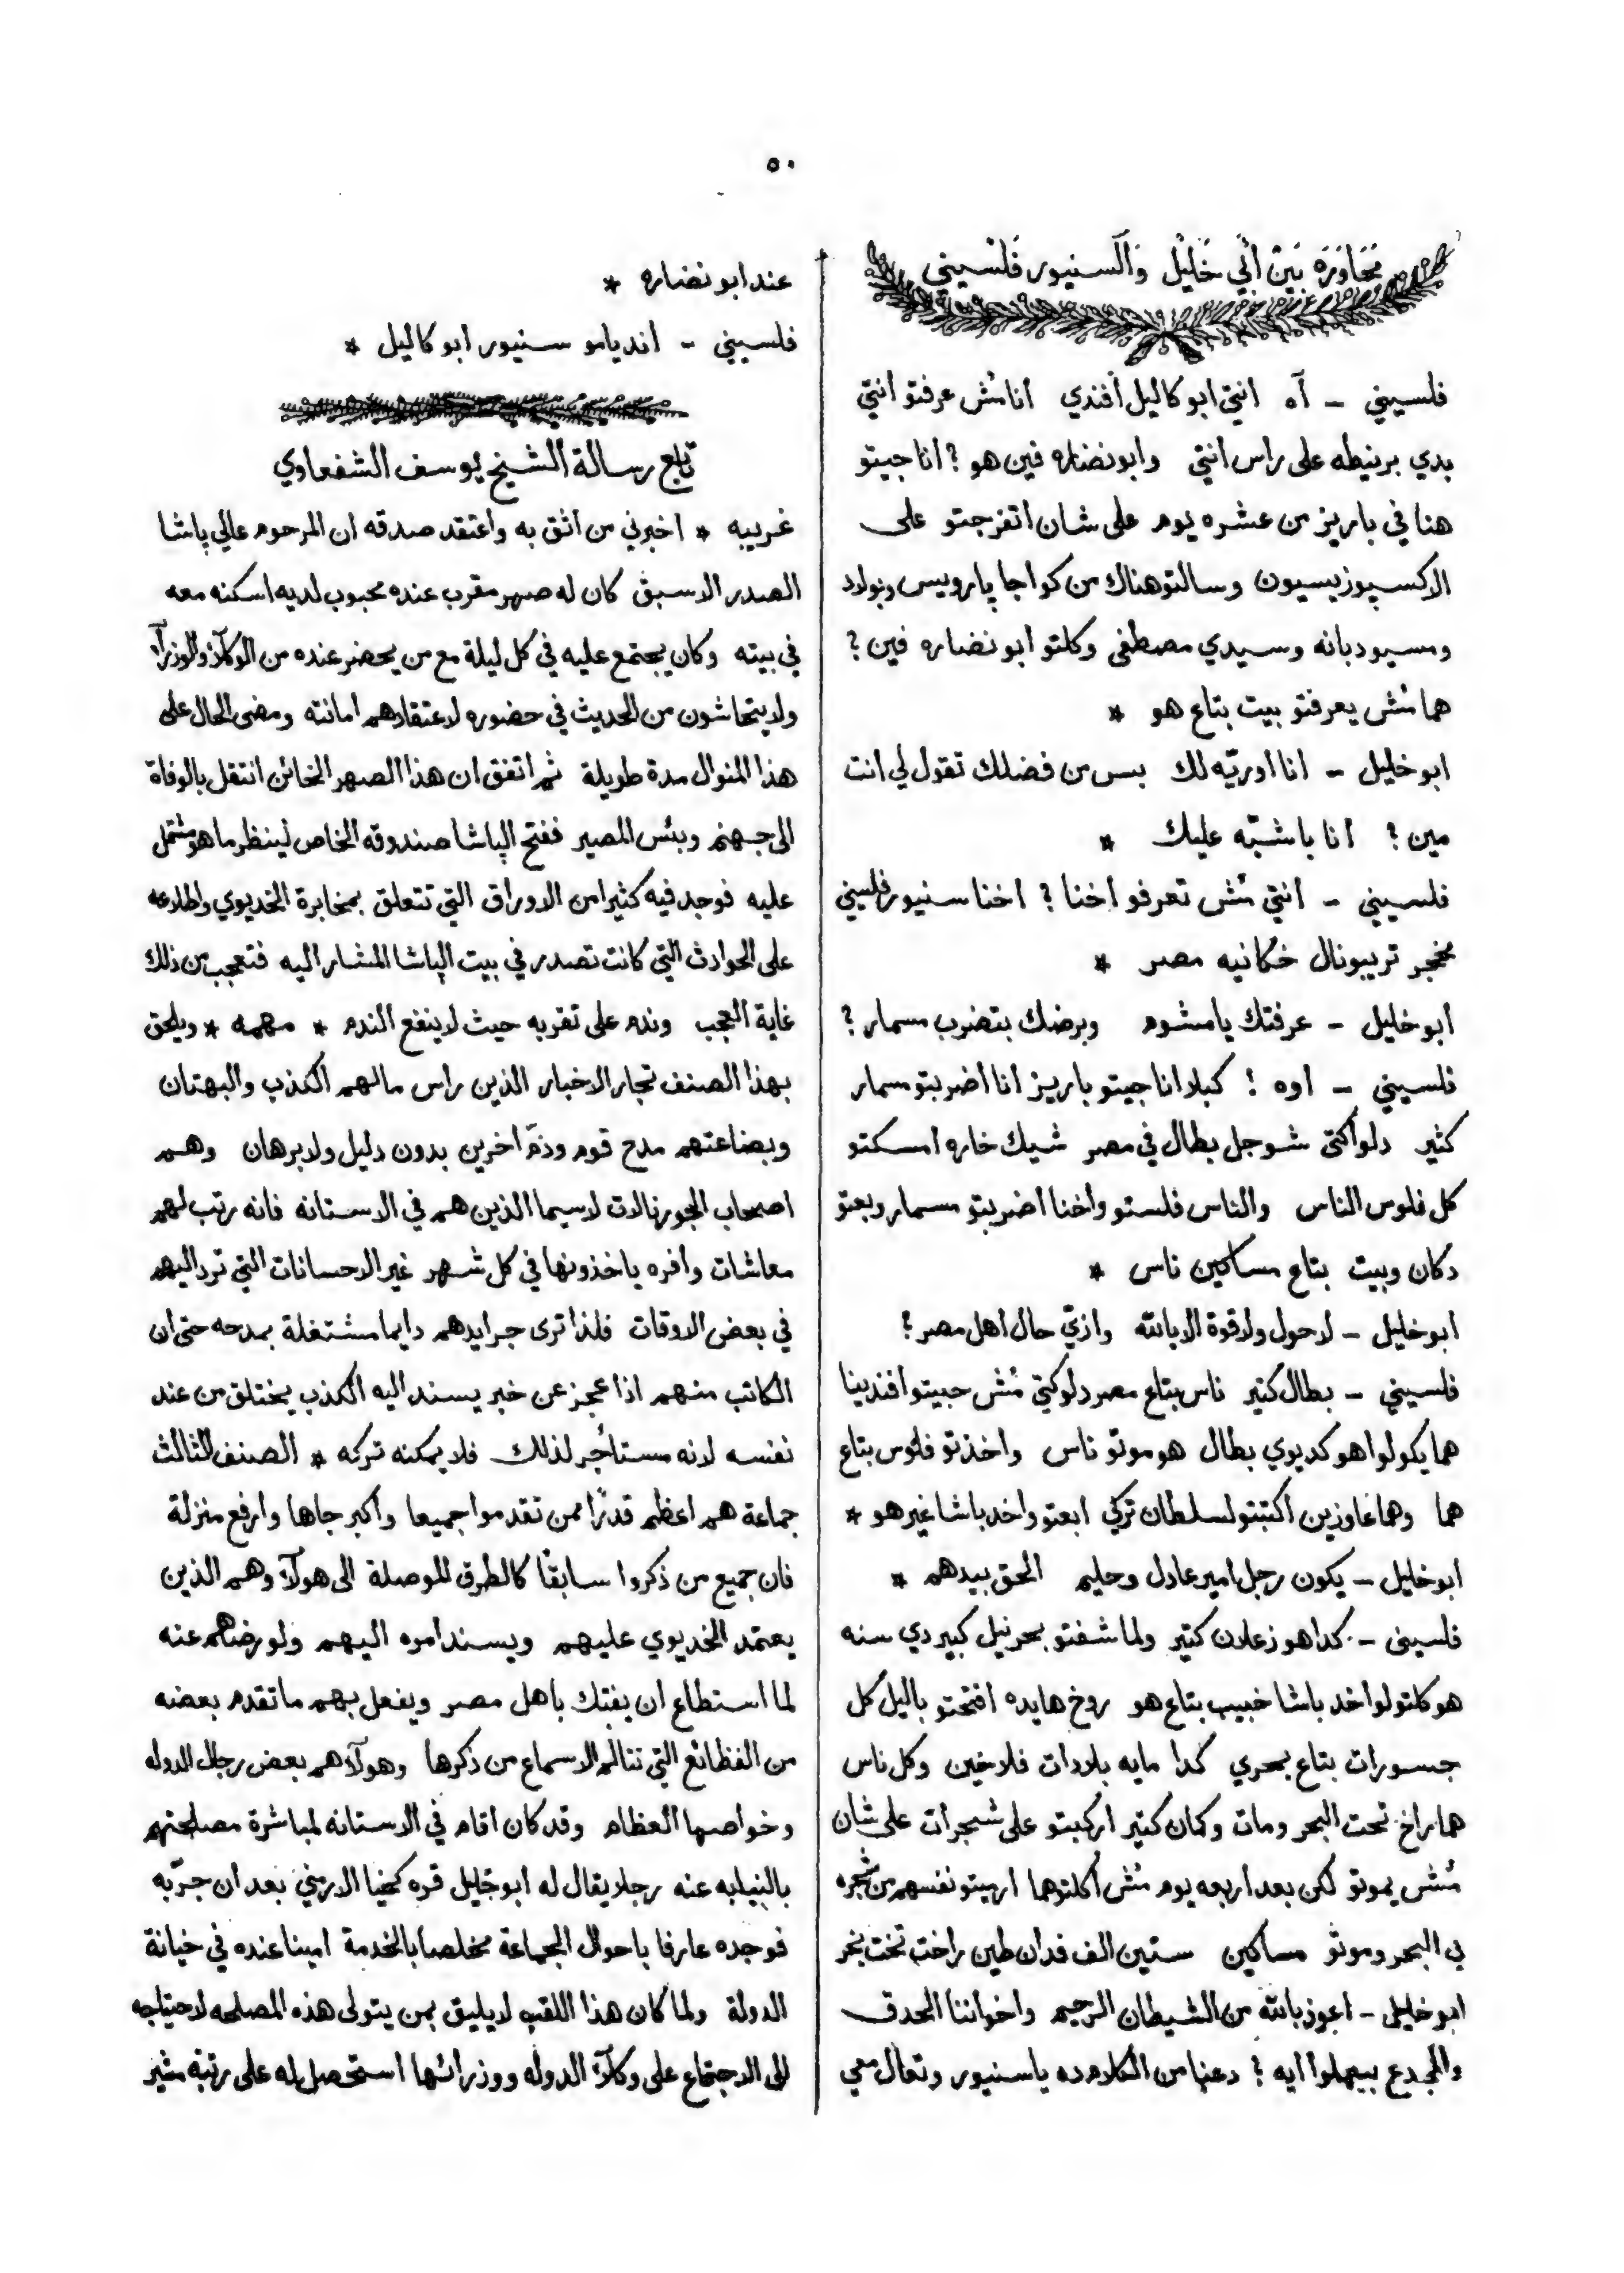 ٥٠
مُحَاوَرَة بَيْن أَبِي خَلِيْل وَالسنيور فَلْسِيني
فلسيني - آه انتي ابو كاليل أفندي انا مُش عرفتو انتي
بدي برنيطه على راس انتي وابو نضاره فين هو ؟ انا جيتو
هنا في باريز من عشره يوم على شان اتفرجتو على
الاكسپوزيسيون وسالتو هناك من كواجا پارويس ونولاد
ومسيو دبانه وسيدي مصطفى وكلتو ابو نضاره فين ؟
هما مُش يعرفتو بيت بتاع هو *
ابو خليل - انا اوريّه لك بس من فضلك تقول لي انت
مين ؟ انا باشبّه عليك *
فلسيني - انتي مُش تعرفو اخنا ؟ اخنا سنيور فلسيني
مخجر تريبونال خكانيه مصر *
ابو خليل - عرفتك يا مشوم وبرضك بتضرب مسمار ؟
فلسيني - اوه ! كبلا انا جيتو باريز انا اضربتو مسمار
كثير دلوأكتى شوجل بطال في مصر شيك خاره امسكتو
كل فلوس الناس والناس فلستو وأخنا اضربتو مسمار وبعتو
دكان وبيت بتاع مساكين ناس *
ابو خليل - لاحول ولا قوة الا بالله وازيّ حال اهل مصر ؟
فلسيني - بطال كتير ناس بتاع مصر دلوكتي مُش حبيتو افندينا
هما يكولوا هو كديوي بطال هو موتو ناس واخذتو فلوس بتاع
هما وهما غاوزين اكتبتو لسلطان تركي ابعتو واخد باشا غير هو *
ابو خليل - يكون رجل امير عادل وحليم الحق بيدهم *
فلسيني - كدا هو زعلان كتير ولما شفتو بحر نيل كبير دي سنه
هو كلتو لواخد باشا خبيب بتاع هو روخ هايده افتحتو باليل كل
جسورات بتاع بحري كدا مايه بلادات فلاخين وكل ناس
هما راخ تحت البحر ومات وكمان كتير اركبتو على شجرات على شان
مُش يموتو لكن بعد اربعه يوم مُش أكلتوها ارميتو نفسهم من شجره
في البحر وموتو مساكين ستين الف فدان طين راخت تخت بخر
ابو خليل - اعوذ بالله من الشيطان الرجيم واخواننا الحدق
والجدع بيعملوا ايه ؟ دعنا من الكلام ده يا سنيور وتعال معي
عند ابو نضاره *
فلسيني - انديامو سنيور ابو كاليل *
تابع رسالة الشيخ يوسف الشفعاوي
غريبه * اخبرني من اثق به واعتقد صدقه ان المرحوم عالي باشا
الصدر الاسبق كان له صهر مقرب عنده محبوب لديه اسكنه معه
في بيته وكان يجتمع عليه في كل ليلة مع من يحضر عنده من الوكلآء والوزرآء
ولا يتحاشون من الحديث في حضوره لاعتقادهم امانته ومضى الحال على
هذا المنوال مدة طويلة ثم اتفق ان هذا الصهر الخائن انتقل بالوفاة
الى جهنم وبئس المصير ففتح الپاشا صندوقه الخاص لينظر ما هو مشتمل
عليه فوجد فيه كثيرا من الاوراق التي تتعلق بمخابرة الخديوي واطلاعه
على الحوادث التي كانت تصدر في بيت الپاشا المشار اليه فتعجب من ذلك
غاية العجب وندم على تقربه حيث لا ينفع الندم * مهمه * ويلحق
بهذا الصنف تجار الاخبار الذين راس مالهم الكذب والبهتان
وبضاعتهم مدح قوم وذمّ اخرين بدون دليل ولا برهان وهم
اصحاب الجورنالات لاسيما الذين هم في الاستانه فانه رتب لهم
معاشات وافره ياخذونها في كل شهر غير الاحسانات التي ترد اليهم
في بعض الاوقات فلذا ترى جرايدهم دايما مشتغلة بمدحه حتى ان
الكاتب منهم اذا عجز عن خبر يسند اليه الكذب يختلق من عند
نفسه لانه مستاجر لذلك فلا يمكنه تركه * الصنف الثالث
جماعة هم اعظم قدرًا ممن تقدموا جميعا واكبر جاها وارفع منزلة
فان جميع من ذكروا سابقًا كالطرق الموصلة الى هولآء وهم الذين
يعتمد الخديوي عليهم ويسند اموره اليهم ولو رضاهم عنه
لما استطاع ان يفتك باهل مصر ويفعل بهم ما تقدم بعضه
من الفظائع التي تتالم الاسماع من ذكرها وهولآء هم بعض رجال الدوله
وخواصها العظام وقد كان اقام في الاستانه لمباشرة مصلحتهم
بالنيابه عنه رجلا يقال له ابو جليل قره كحيا الارمني بعد ان جرّبه
فوجده عارفا باحوال الجماعة مخلصا بالخدمة امينا عنده في خيانة
الدولة ولما كان هذا اللقب لا يليق بمن يتولى هذه المصلحه لاحتياجه
الى الاجتماع على وكلآء الدوله ووزرائها استحصل له على رتبة مشير